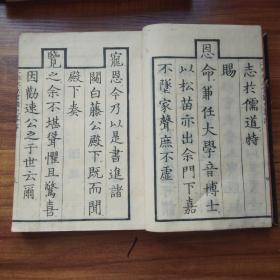 志於儒道特
賜
恩命兼任大學音博士
以松苗亦出余門下嘉
不墜家聲庶不虛
寵恩今乃以是書進諸
關白藤公殿下既而聞
殿下奏
覽之余不堪聳懼且驚喜
因勸速公之于世云爾